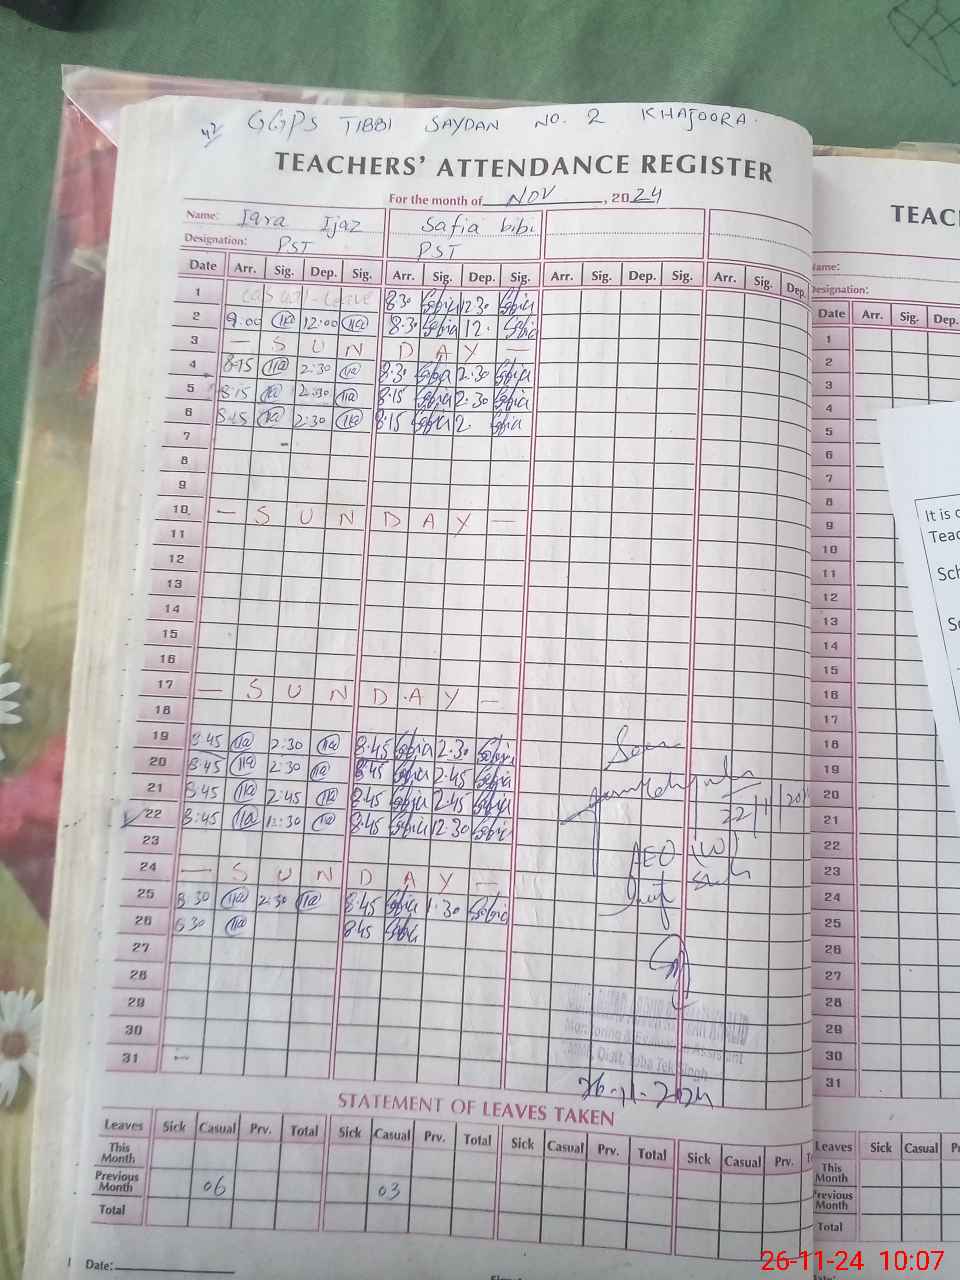 GGPS TIBBI SAYDAN NO. 2 KHAJOORA.
TEACHERS' ATTENDANCE REGISTER
For the month of NOV, 2024
Name: Iqra Ijaz Safia bibi
Designation: PST PST
Date Arr. Sig. Dep. Sig. Arr. Sig. Dep. Sig. Arr. Sig. Dep. Sig. Arr. Sig. Dep.
1 casual-leave 8:30 Safia 12:30 Safia
2 9:00 12:00 8:30 Safia 12. Safia
3 — S U N D A Y —
4 8:15 2:30 8:3 Safia 2:30 Safia
5 8:15 2:30 8:15 Safia 2:30 Safia
6 8:15 2:30 8:15 Safia 2. Safia
7
8
9
10 — S U N D A Y —
11
12
13
14
15
16
17 — S U N D A Y —
18
19 8:45 2:30 8:45 Safia 2:30 Safia
20 8:45 2:30 8:45 Safia 2:45 Safia
21 8:45 2:45 8:45 Safia 2:45 Safia
22 8:45 12:30 8:45 Safia 12:30 Safia
23
24 — S U N D A Y —
25 8:30 2:30 8:45 Safia 1:30 Safia
26 8:30 8:45 Safia
27
28
29
30
31
Seen
22/11/20
AEO (W)
Monitoring & Evaluation Assistant
Toba Tek Singh
26-11-2024
STATEMENT OF LEAVES TAKEN
Leaves Sick Casual Prv. Total Sick Casual Prv. Total Sick Casual Prv. Total Sick Casual Prv.
This Month
Previous Month 06 03
Total
Date:
TEAC
Name:
Designation:
Date Arr. Sig. Dep.
1
2
3
4
5
6
7
8
9
10
11
12
13
14
15
16
17
18
19
20
21
22
23
24
25
26
27
28
29
30
31
Leaves Sick Casual
This Month
Previous Month
Total
It is
Teac
Sch
26-11-24 10:07